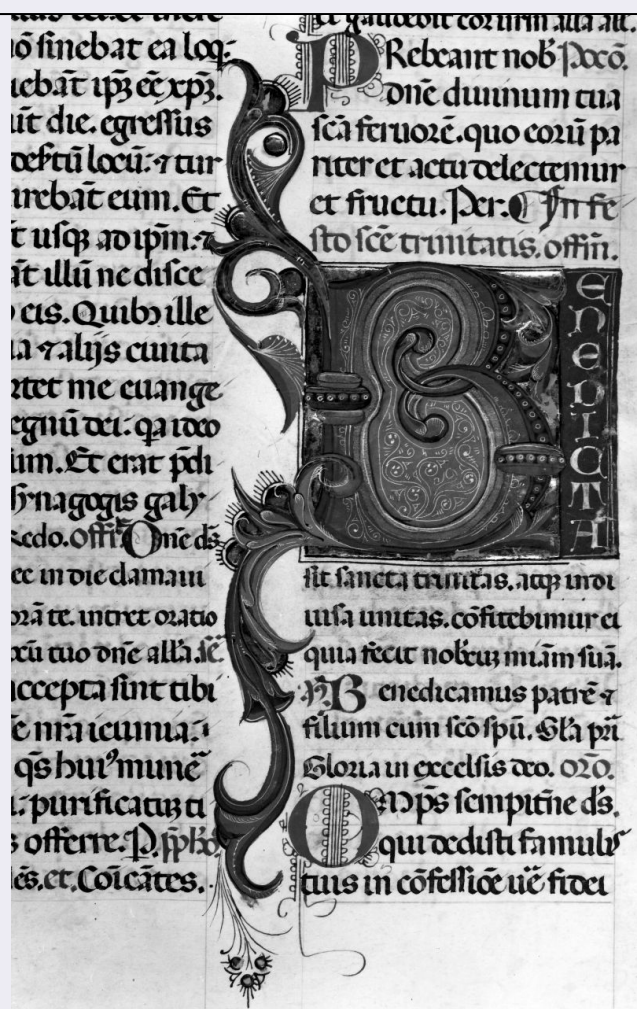 nō sinebat ea loq̄
iebāt ipꝫ eē xp̄ꝫ.
ūt die. egressus
desertū locū: ⁊ tur
irebāt eum. Et
t usqꝫ ad ipm̄: ⁊
āt illū ne disce
eis. Quibꝫ ille
ia ⁊ alijs ciuita
rtet me euange
egnū dei: qa ideo
um. Et erat p̄di
synagogis galy
Credo. offm̄ Dn̄e ds̄
ce in die clamaui
orā te. intret oratio
tuo dn̄e all'a.
accepta sint tibi
e nr̄a ieiunia:
qs̄ hui' munē
purificatꝫ ti
offerre. P.
ēs. et. Cōicātes.
et gaudebit cor urm̄ all'a all'.
PRebeant nob' Pocō.
dn̄e diuinum tua
scā feruorē. quo eorū pa
riter et actu delectemur
et fructu. Per. In fe
sto scē trinitatis. offm̄.
BENEDICTA
sit sancta trinitas. atqꝫ indi
uisa unitas. cōfitebimur ei
quia fecit nobcuꝫ miām suā.
Benedicamus patrē ⁊
filium cum scō spū. Gl'a pr̄i
Gloria in excelsis deo. oro.
OMp̄s sempitn̄e ds̄.
qui dedisti famulis
tuis in cōfessiōe ue͞ fidei